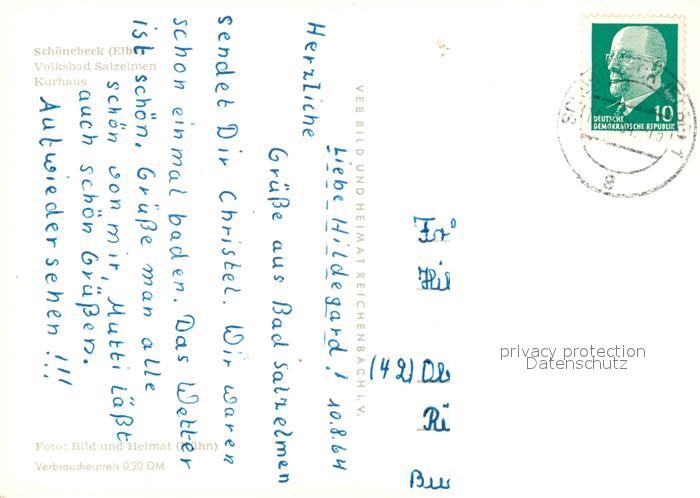 Schönebeck (Elbe)
Volksbad Salzelmen
Kurhaus
Liebe Hildegard! 10.8.64
Herzliche Grüße aus Bad Salzelmen
sendet Dir Christel. Wir waren
schon einmal baden. Das Wetter
ist schön. Grüße man alle
schön von mir, Mutti läßt
auch schön Grüßen.
Autwiedersehen!!!
VEB BILD UND HEIMAT REICHENBACH I. V.
Foto: Bild und Heimat
Verbraucherpreis 0,20 DM
10
DEUTSCHE
DEMOKRATISCHE REPUBLIK
Hil
(42)
privacy protection
Datenschutz